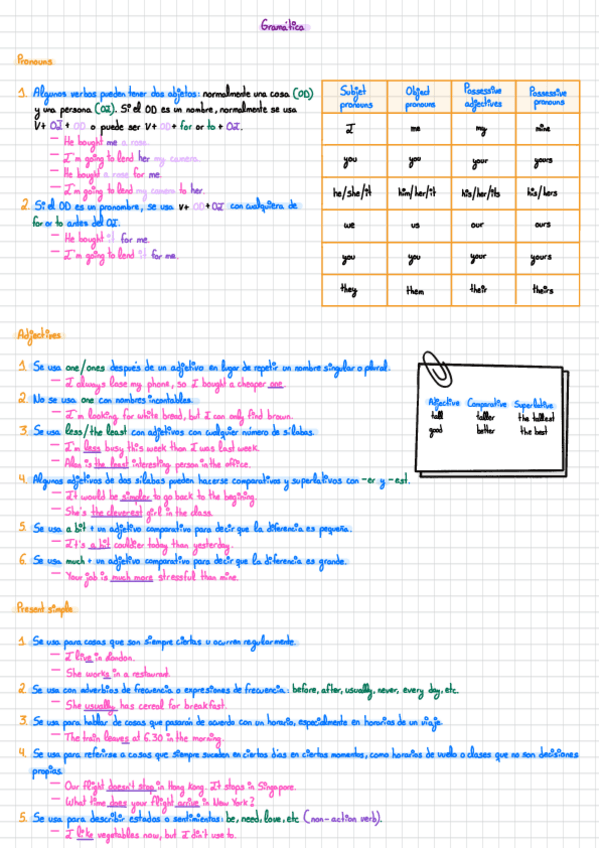 Gramática
Pronouns
1. Algunos verbos pueden tener dos objetos: normalmente una cosa (OD)
y una persona (OI). Si el OD es un nombre, normalmente se usa
V+ OI + OD o puede ser V+ OD + for or to + OI.
— He bought me a rose.
— I'm going to lend her my camera.
— He bought a rose for me.
— I'm going to lend my camera to her.
2. Si el OD es un pronombre, se usa V+ OD+OI con cualquiera de
for or to antes del OI.
— He bought it for me.
— I'm going to lend it for me.
Subjet pronouns Object pronouns Possessive adjectives Possessive pronouns
I me my mine
you you your yours
he/she/it him/her/it his/her/its his/hers
we us our ours
you you your yours
they them their theirs
Adjectives
1. Se usa one/ones después de un adjetivo en lugar de repetir un nombre singular o plural.
— I always lose my phone, so I bought a cheaper one.
2. No se usa one con nombres incontables.
— I'm looking for white bread, but I can only find brown.
3. Se usa less/the least con adjetivos con cualquier número de sílabas.
— I'm less busy this week than I was last week.
— Alex is the least interesting person in the office.
4. Algunos adjetivos de dos sílabas pueden hacerse comparativos y superlativos con -er y -est.
— It would be simpler to go back to the beginning.
— She's the cleverest girl in the class.
5. Se usa a bit + un adjetivo comparativo para decir que la diferencia es pequeña.
— It's a bit couldier today than yesterday.
6. Se usa much + un adjetivo comparativo para decir que la diferencia es grande.
— Your job is much more stressful than mine.
Adjective Comparative Superlative
tall taller the tallest
good better the best
Present simple
1. Se usa para cosas que son siempre ciertas u ocurren regularmente.
— I live in London.
— She works in a restaurant.
2. Se usa con adverbios de frecuencia o expresiones de frecuencia: before, after, usually, never, every day, etc.
— She usually has cereal for breakfast.
3. Se usa para hablar de cosas que pasarán de acuerdo con un horario, especialmente en horarios de un viaje.
— The train leaves at 6.30 in the morning.
4. Se usa para referirse a cosas que siempre suceden en ciertos días en ciertos momentos, como horarios de vuelo o clases que no son decisiones
propias.
— Our flight doesn't stop in Hong Kong. It stops in Singapore.
— What time does your flight arrive in New York?
5. Se usa para describir estados o sentimientos: be, need, love, etc (non-action verb).
— I like vegetables now, but I din't use to.